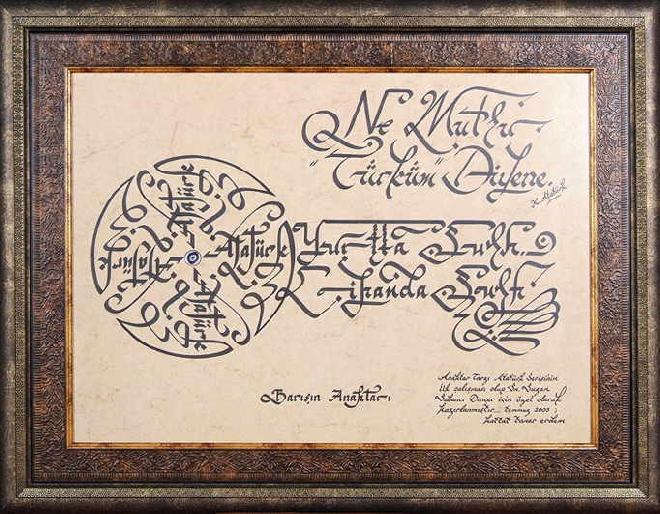 Ne Mutlu
"Türküm" Diyene
K. Atatürk
Atatürk
Atatürk
Atatürk
Atatürk
Yurtta Sulh
Cihanda Sulh
Barışın Anahtarı
Anahtar Tarzı Atatürk Serisinin
ilk çalışması olup Dr. Duygu
için özel olarak
hazırlanmıştır. Temmuz 2005
Hattat